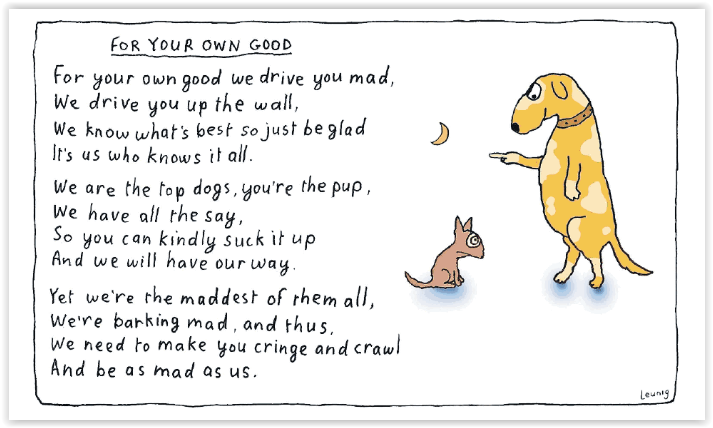 FOR YOUR OWN GOOD
For your own good we drive you mad,
We drive you up the wall,
We know what's best so just be glad
It's us who knows it all.
We are the top dogs, you're the pup,
We have all the say,
So you can kindly suck it up
And we will have our way.
Yet we're the maddest of them all,
We're barking mad, and thus,
We need to make you cringe and crawl
And be as mad as us.
Leunig